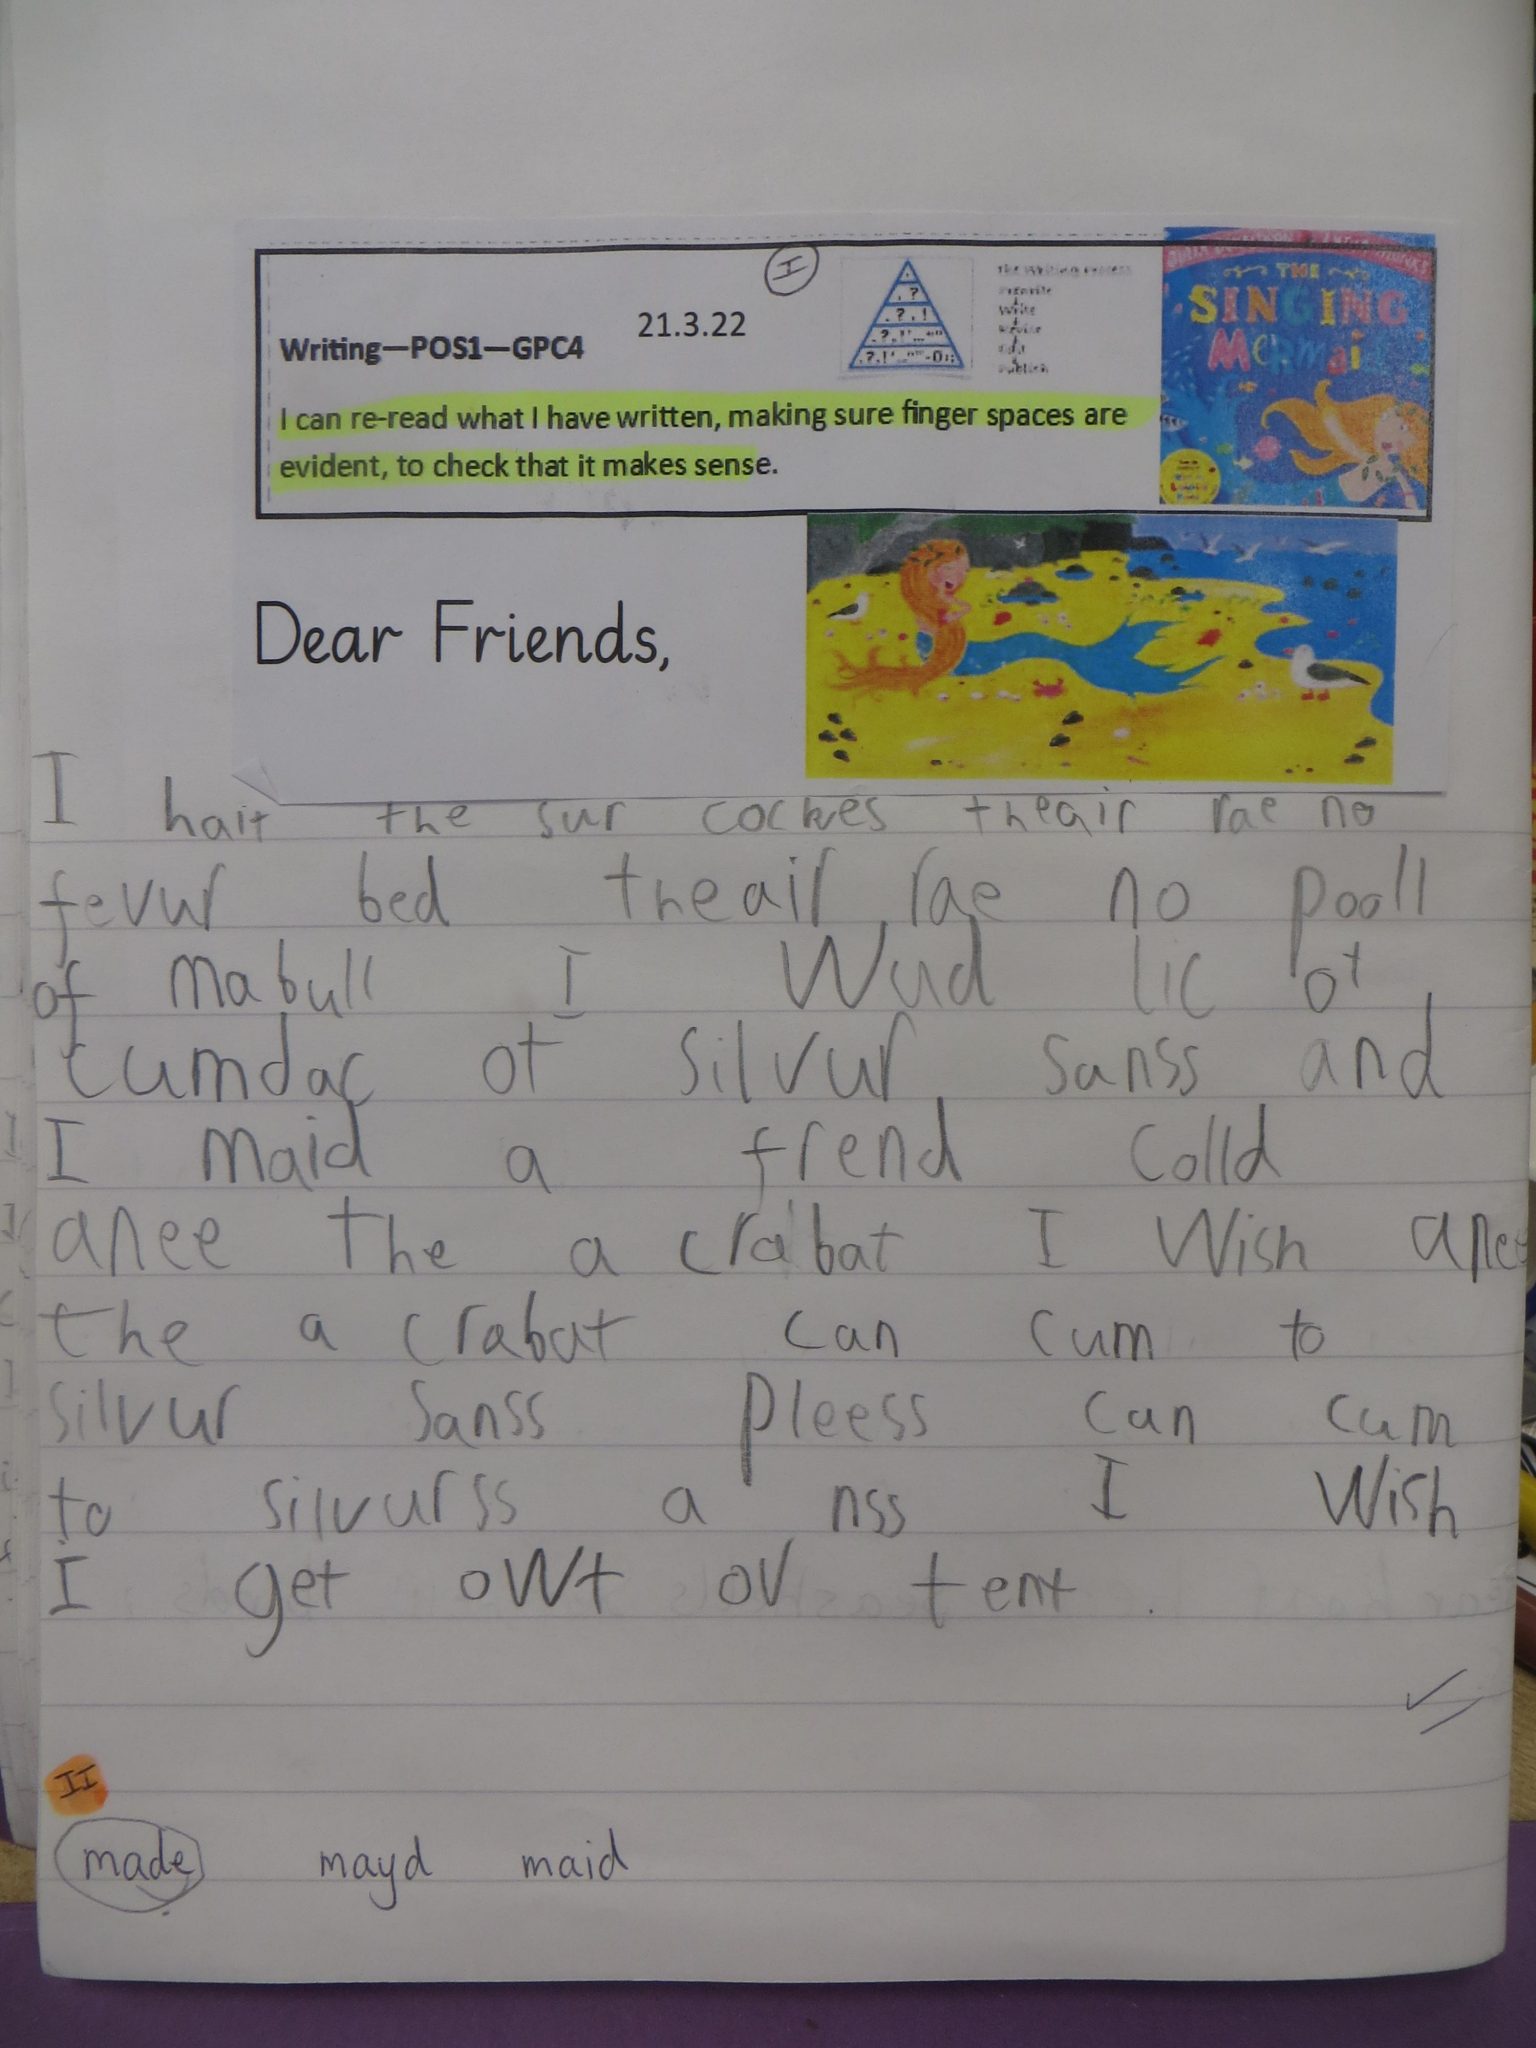 I
21.3.22
Writing—POS1—GPC4
I can re-read what I have written, making sure finger spaces are
evident, to check that it makes sense.
The Writing Process
Write
Publish
THE
SINGING
MERMAID
Dear Friends,
I hait the sur cockes theair rae no
fevur bed theair rae no pooll
of mabull I Wud lic ot
cumdac ot silvur sanss and
I maid a frend colld
anee the a crabat I Wish anee
the a crabat can cum to
silvur sanss pleess can cum
to silvurss a nss I Wish
I get owt ov tent.
II
made mayd maid